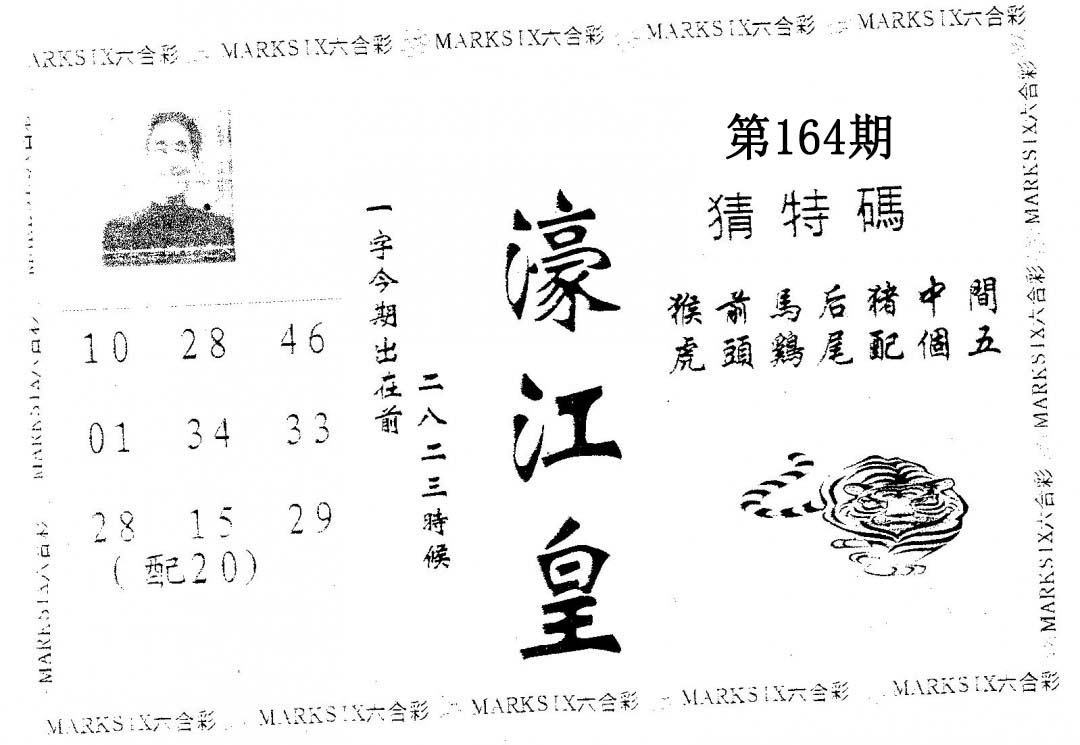 MARKSIX六合彩 MARKSIX六合彩 MARKSIX六合彩 MARKSIX六合彩 MARKSIX六合彩
第164期
猜特碼
猴前馬后豬中間
虎頭鷄尾配個五
濠江皇
一字今期出在前
二八二三時候
10 28 46
01 34 33
28 15 29
(配20)
MARKSIX六合彩
MARKSIX六合彩
MARKSIX六合彩
MARKSIX六合彩 MARKSIX六合彩 MARKSIX六合彩 MARKSIX六合彩 MARKSIX六合彩